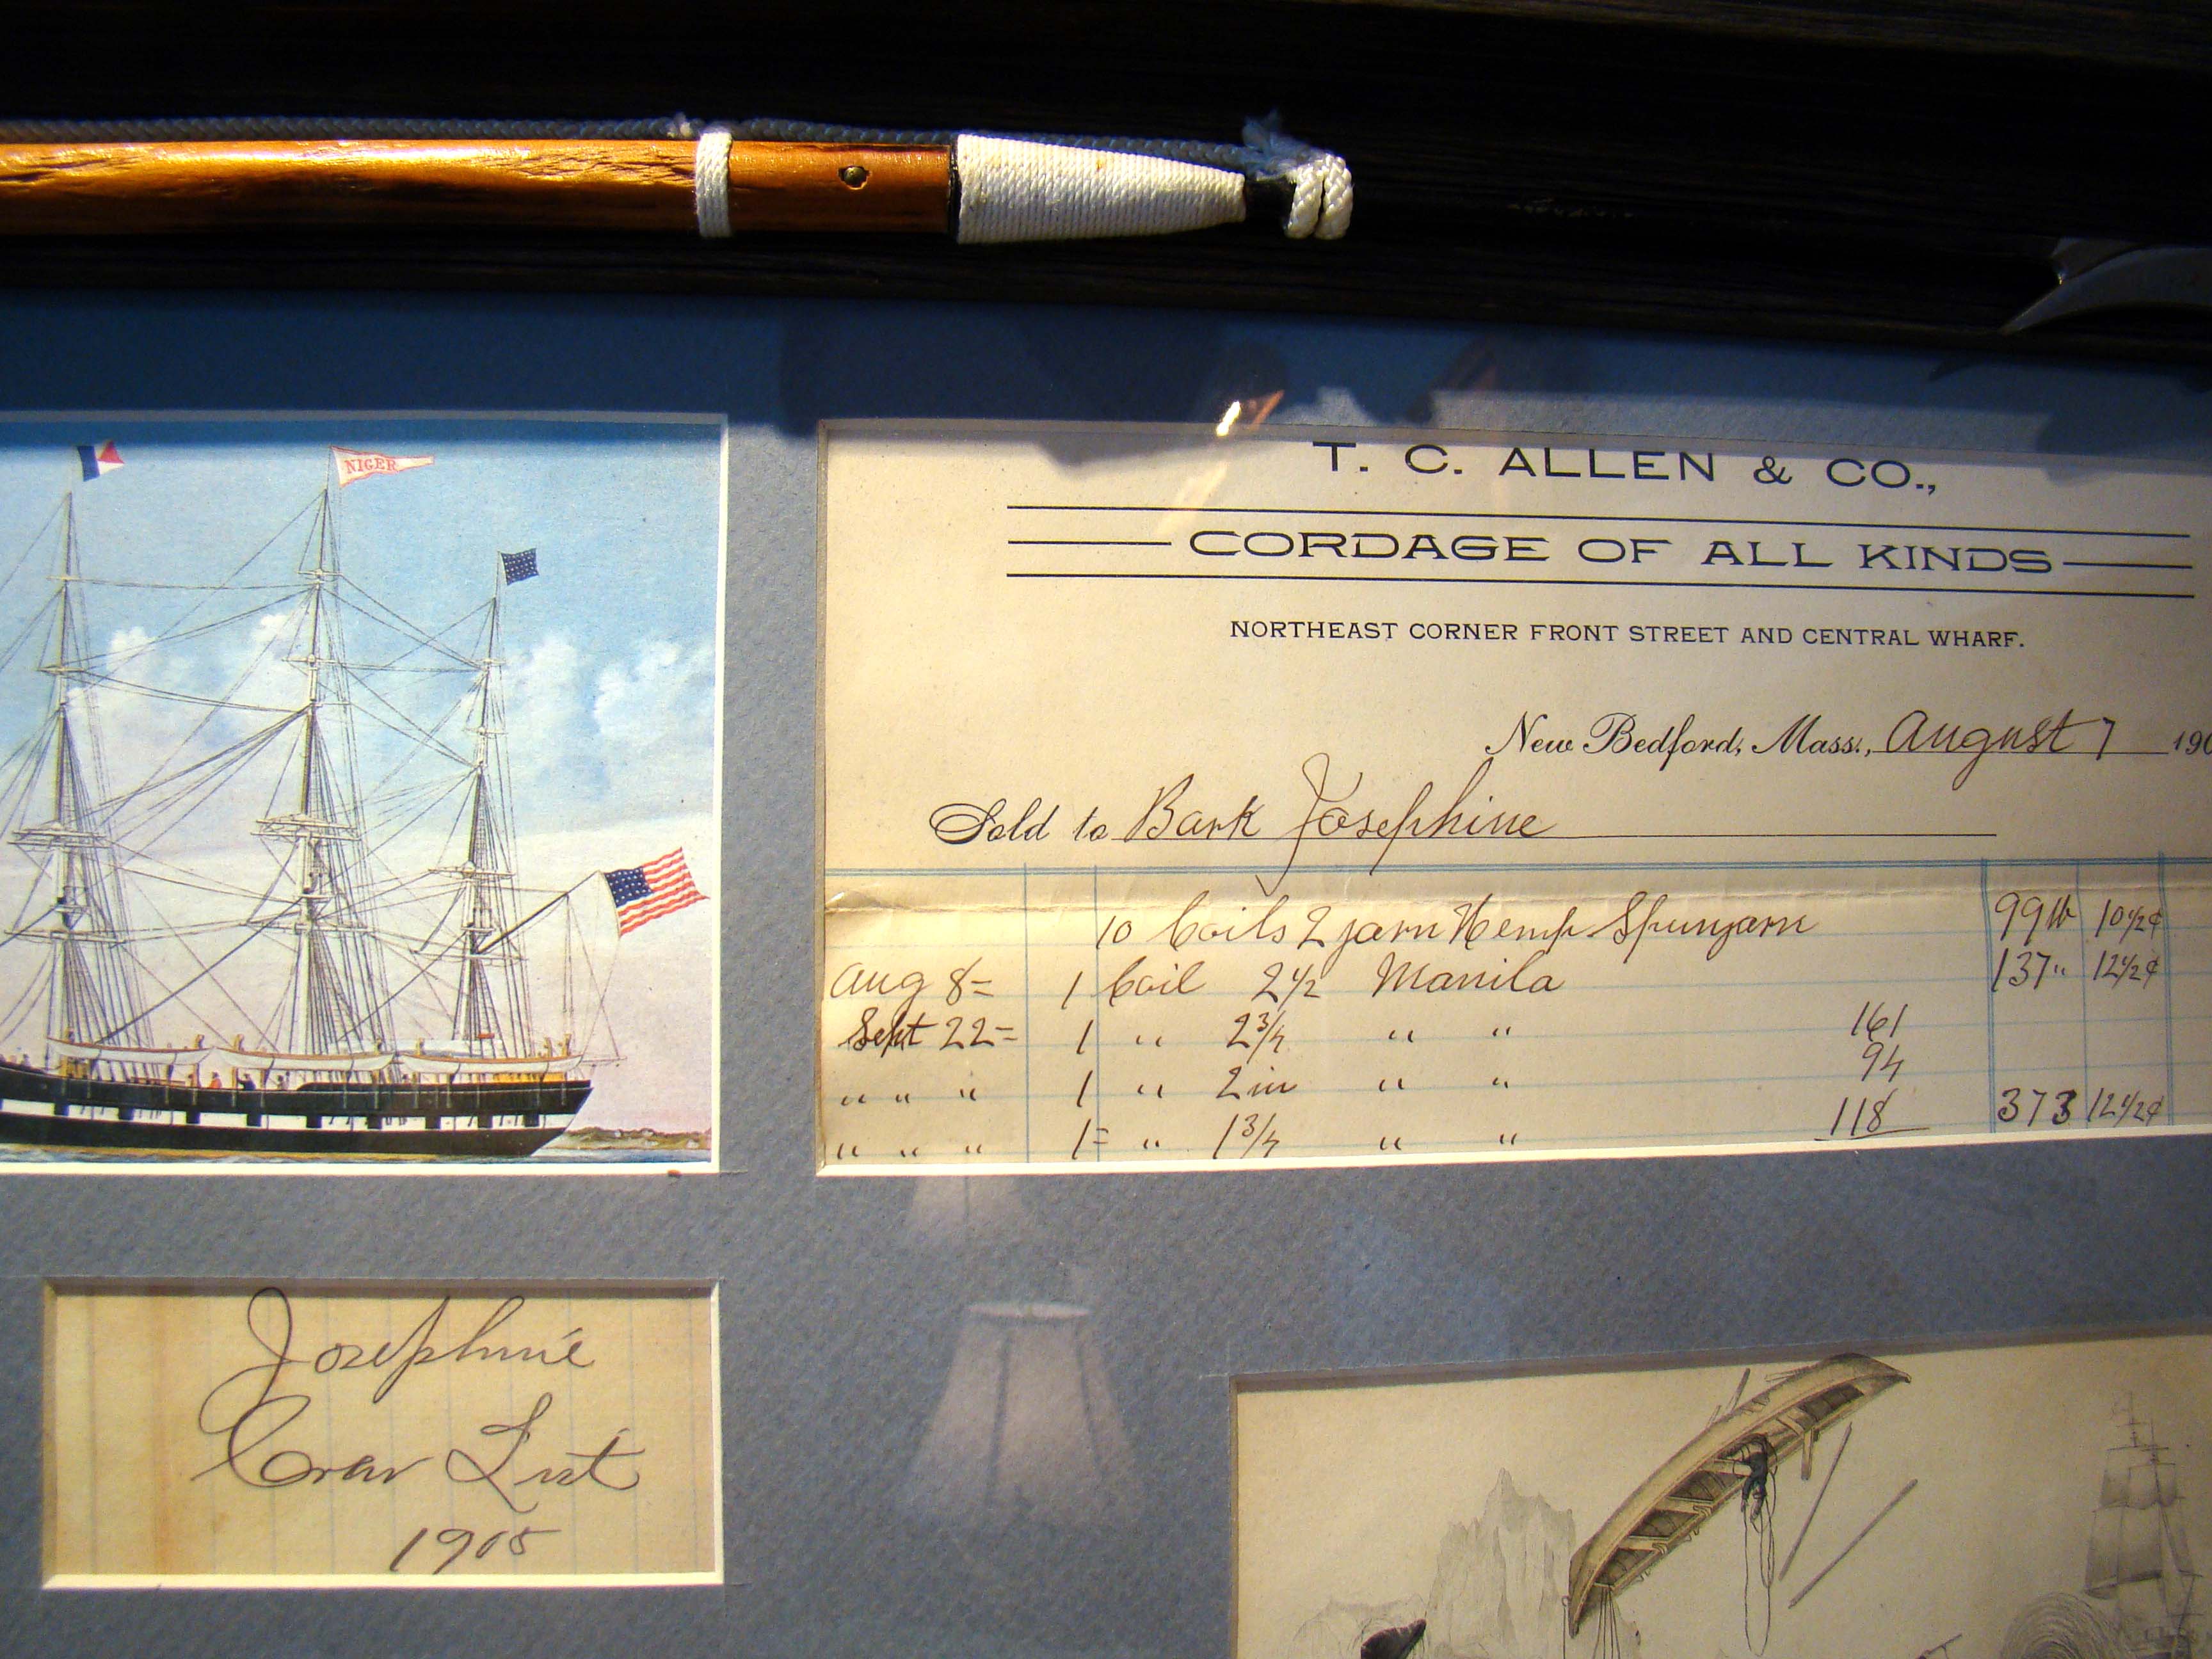 NIGER
T. C. ALLEN & CO.,
CORDAGE OF ALL KINDS
NORTHEAST CORNER FRONT STREET AND CENTRAL WHARF.
New Bedford, Mass., August 7 190
Sold to Bark Josephine
10 Coils 2 yarn Hemp Spunyarn 99 lb 10 1/2¢
Aug 8= 1 Coil 2 1/2 Manila 137 " 12 1/2¢
Sept 22= 1 " 2 3/4 " " 161
" " " 1 " 2 in " " 94
" " " 1= " 1 3/4 " " 118 373 12 1/2¢
Josephine
Crew List
1905